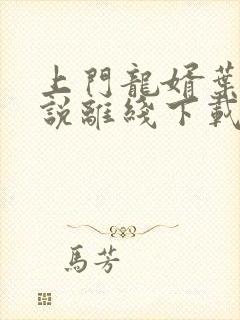 上門龍婿葉
說離綫下載
馬芳